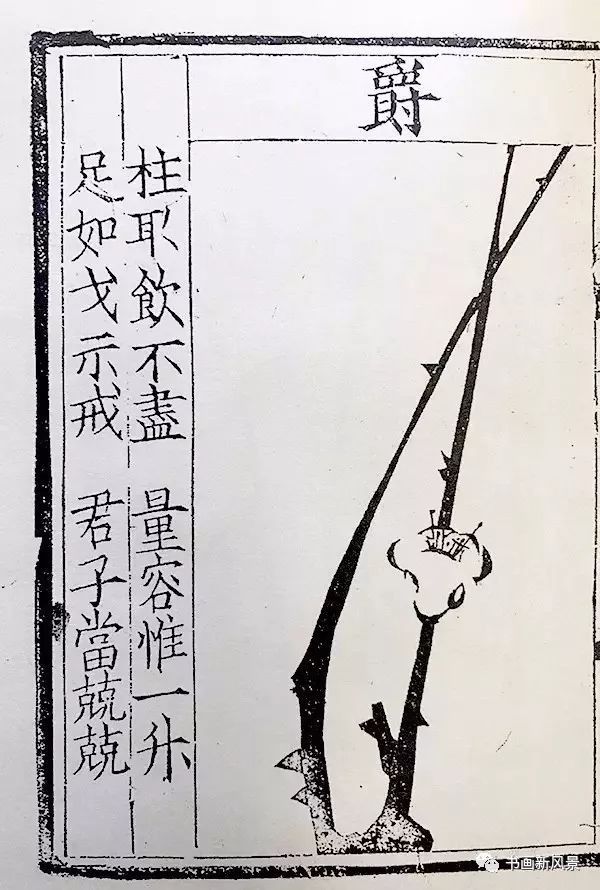 爵
柱取飲不盡 量容惟一升
足如戈示戒 君子當兢兢
书画新风景